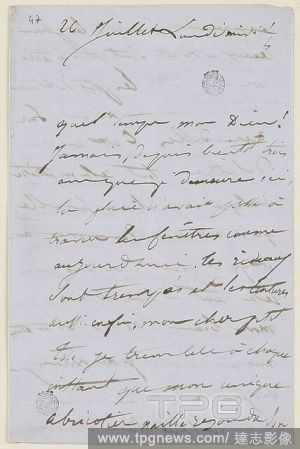 47
26 Juillet Lundi midi
quel temps mon Dieu!
Jamais, depuis bientôt trois
ans que je demeure ici,
la pluie n'avait à
travers les fenêtres comme
aujourd'hui. les rideaux
sont trempés et les tentures
aussi. enfin, mon cher ptit
To, je tremble à chaque
instant que mon unique
abricotier
TPG
www.tpgnews.com / 達志影像